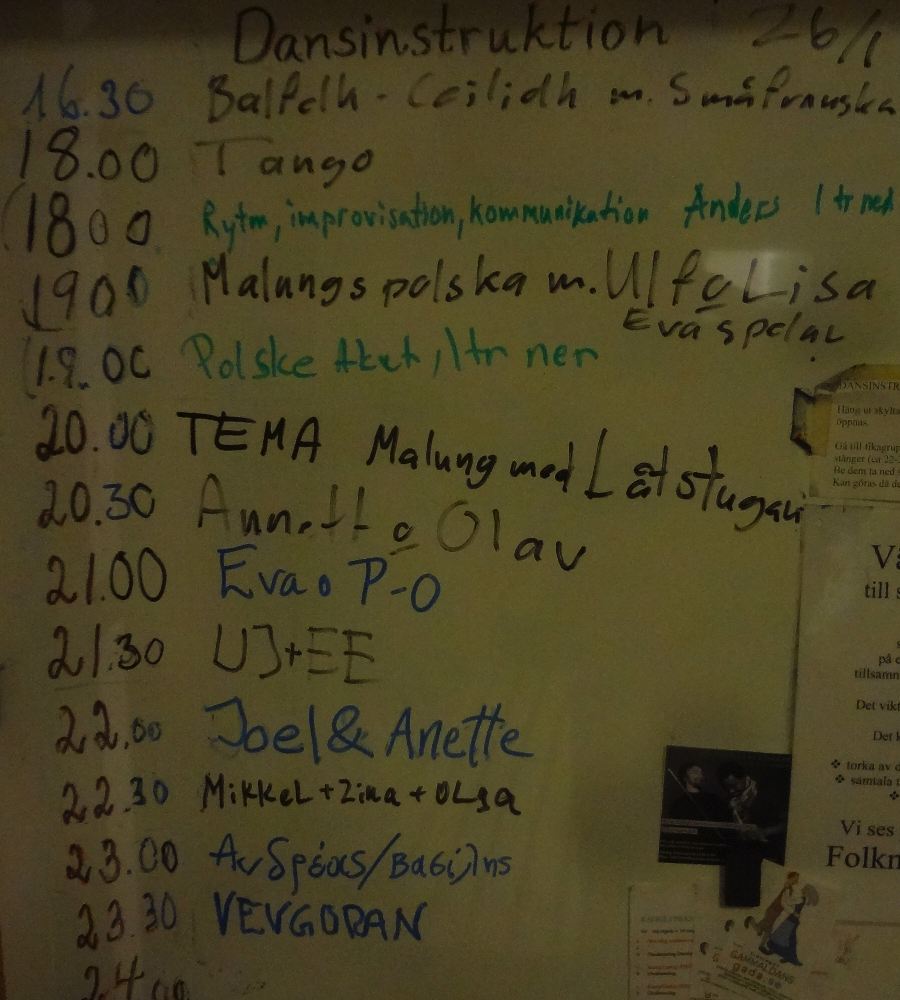 Dansinstruktion 26/1
16.30 Balfolk - Ceilidh m. Småfranska
18.00 Tango
(1800 Rytm, improvisation, kommunikation Anders 1 tr ned
1900 Malungspolska m. Ulf o Lisa
Eva spelar
(19.00 Polske Aket, 1 tr ner
20.00 TEMA Malung med Låtstugan
20.30 Annett o Olav
21.00 Eva o P-O
21.30 UJ+EE
22.00 Joel & Anette
22.30 Mikkel + Zina + OLga
23.00 Ανδρέας/Βασίλης
23.30 VEVGORAN
24.00
DANSINSTR
Häng ut skylta
öppnas.
Gå till fikagrup
stänger (ca 22-
Be dem ta ned
Kan göras då de
Vä
till s
på e
tillsamn
Det vikt
Det k
❖ torka av d
❖ samtala t
❖
Vi ses
Folkn
GAMMALDANS
gada.se